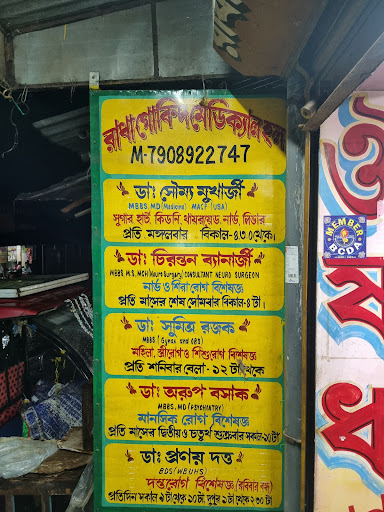 রাধা গোবিন্দ মেডিক্যাল হল
M-7908922747
ডাঃ সৌম্য মুখার্জী
MBBS, MD (Medicine) MACF (USA)
সুগার হার্ট, কিডনি, থাইরয়েড, নার্ভ, লিভার
প্রতি মঙ্গলবার বিকাল-৪.৩০ থেকে।
ডাঃ চিরন্তন ব্যানার্জী
MBBS, M.S, MCH (Neuro Surgery) CONSULTANT NEURO SURGEON
নার্ভ ও শিরা রোগ বিশেষজ্ঞ
প্রতি মাসের শেষ সোমবার বিকাল-৪ টা।
ডাঃ সুমিত্র রজক
MBBS (Gynae and OBS)
মহিলা, স্ত্রীরোগ ও শিশুরোগ বিশেষজ্ঞ
প্রতি শনিবার বেলা-১২ টা থেকে
ডাঃ অরুপ বসাক
MBBS, MD (PSYCHIATRY)
মানসিক রোগ বিশেষজ্ঞ
প্রতি মাসের দ্বিতীয় ও চতুর্থ শুক্রবার সকাল-১০টা
ডাঃ প্রণয় দত্ত
BDS (WBUHS)
দন্তরোগ বিশেষজ্ঞ (রবিবার বন্ধ)
প্রতিদিন সকাল ৯ টা থেকে ১০ টা, দুপুর ১ টা থেকে ২.৩০ টা
MEMBER
BCDA